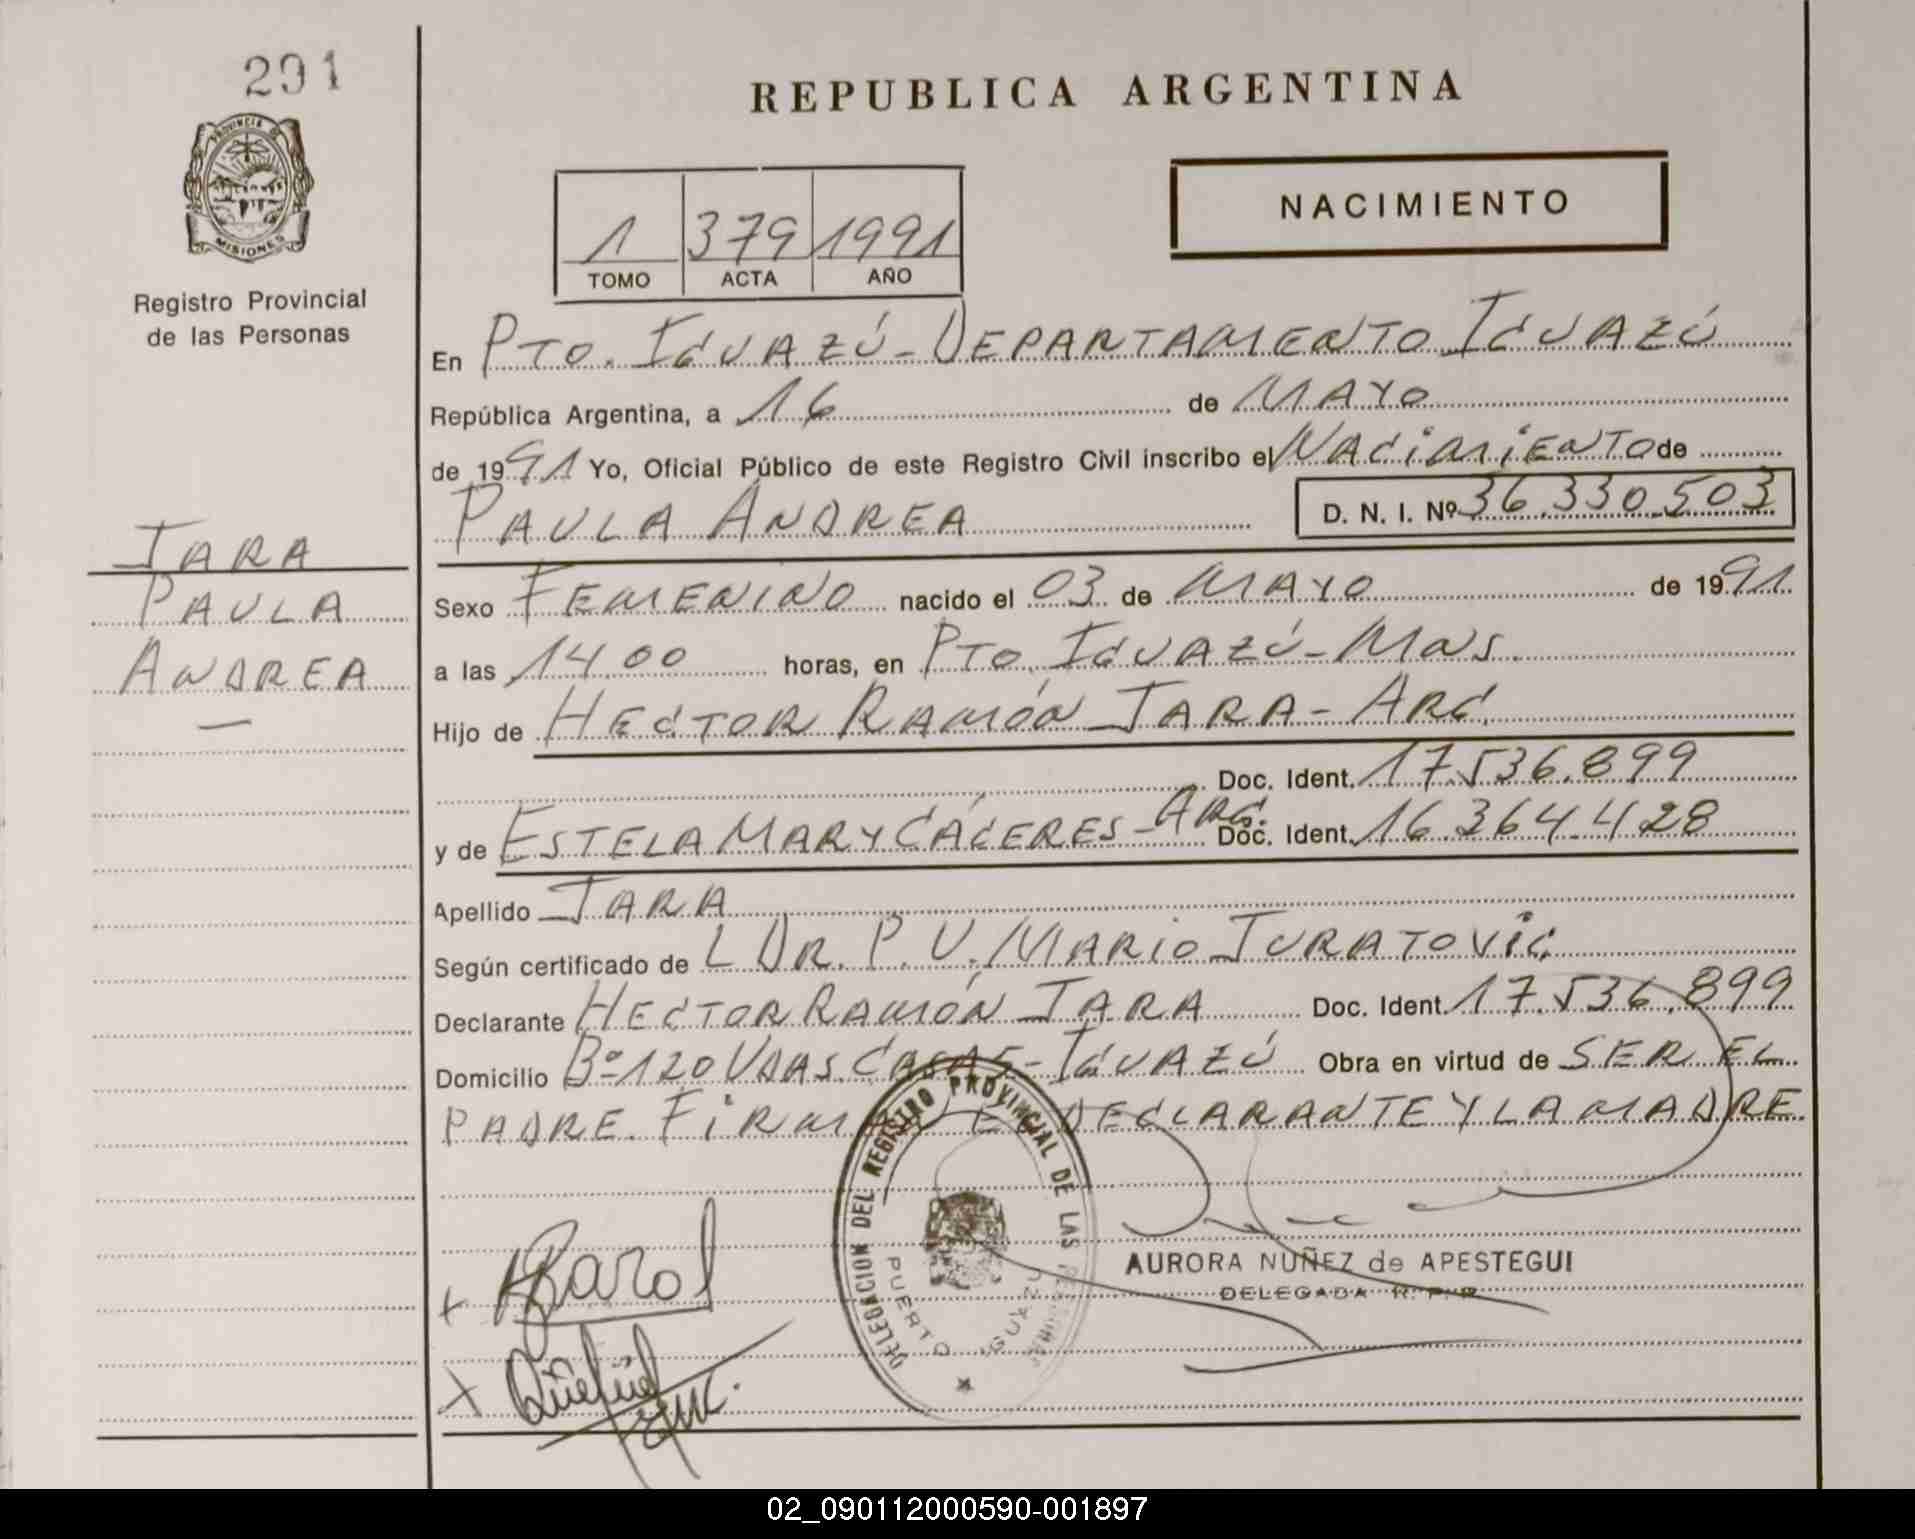 291
REPUBLICA ARGENTINA
PROVINCIA DE
MISIONES
NACIMIENTO
1 379 1991
TOMO ACTA AÑO
Registro Provincial
de las Personas
En PTO. IGUAZÚ - DEPARTAMENTO IGUAZÚ
República Argentina, a 16 de MAYO
de 1991 Yo, Oficial Público de este Registro Civil inscribo el NACIMIENTO de
PAULA ANDREA D. N. I. Nº 36.330.503
JARA
PAULA
ANDREA
Sexo FEMENINO nacido el 03 de MAYO de 1991
a las 14.00 horas, en PTO. IGUAZÚ - MNS.
Hijo de HECTOR RAMÓN JARA - ARG.
Doc. Ident. 17.536.899
y de ESTELA MARY CÁCERES - ARG. Doc. Ident. 16.364.428
Apellido JARA
Según certificado de L DR. P. V. MARIO JURATOVIC
Declarante HECTOR RAMÓN JARA Doc. Ident. 17.536.899
Domicilio Bº 120 VDAS. CASAS - IGUAZÚ Obra en virtud de SER EL
PADRE. FIRMAN EL DECLARANTE Y LA MADRE.
DELEGACION DEL REGISTRO PROVINCIAL DE LAS PERSONAS
PUERTO IGUAZU
AURORA NUÑEZ de APESTEGUI
DELEGADA R. P. P.
02_090112000590-001897